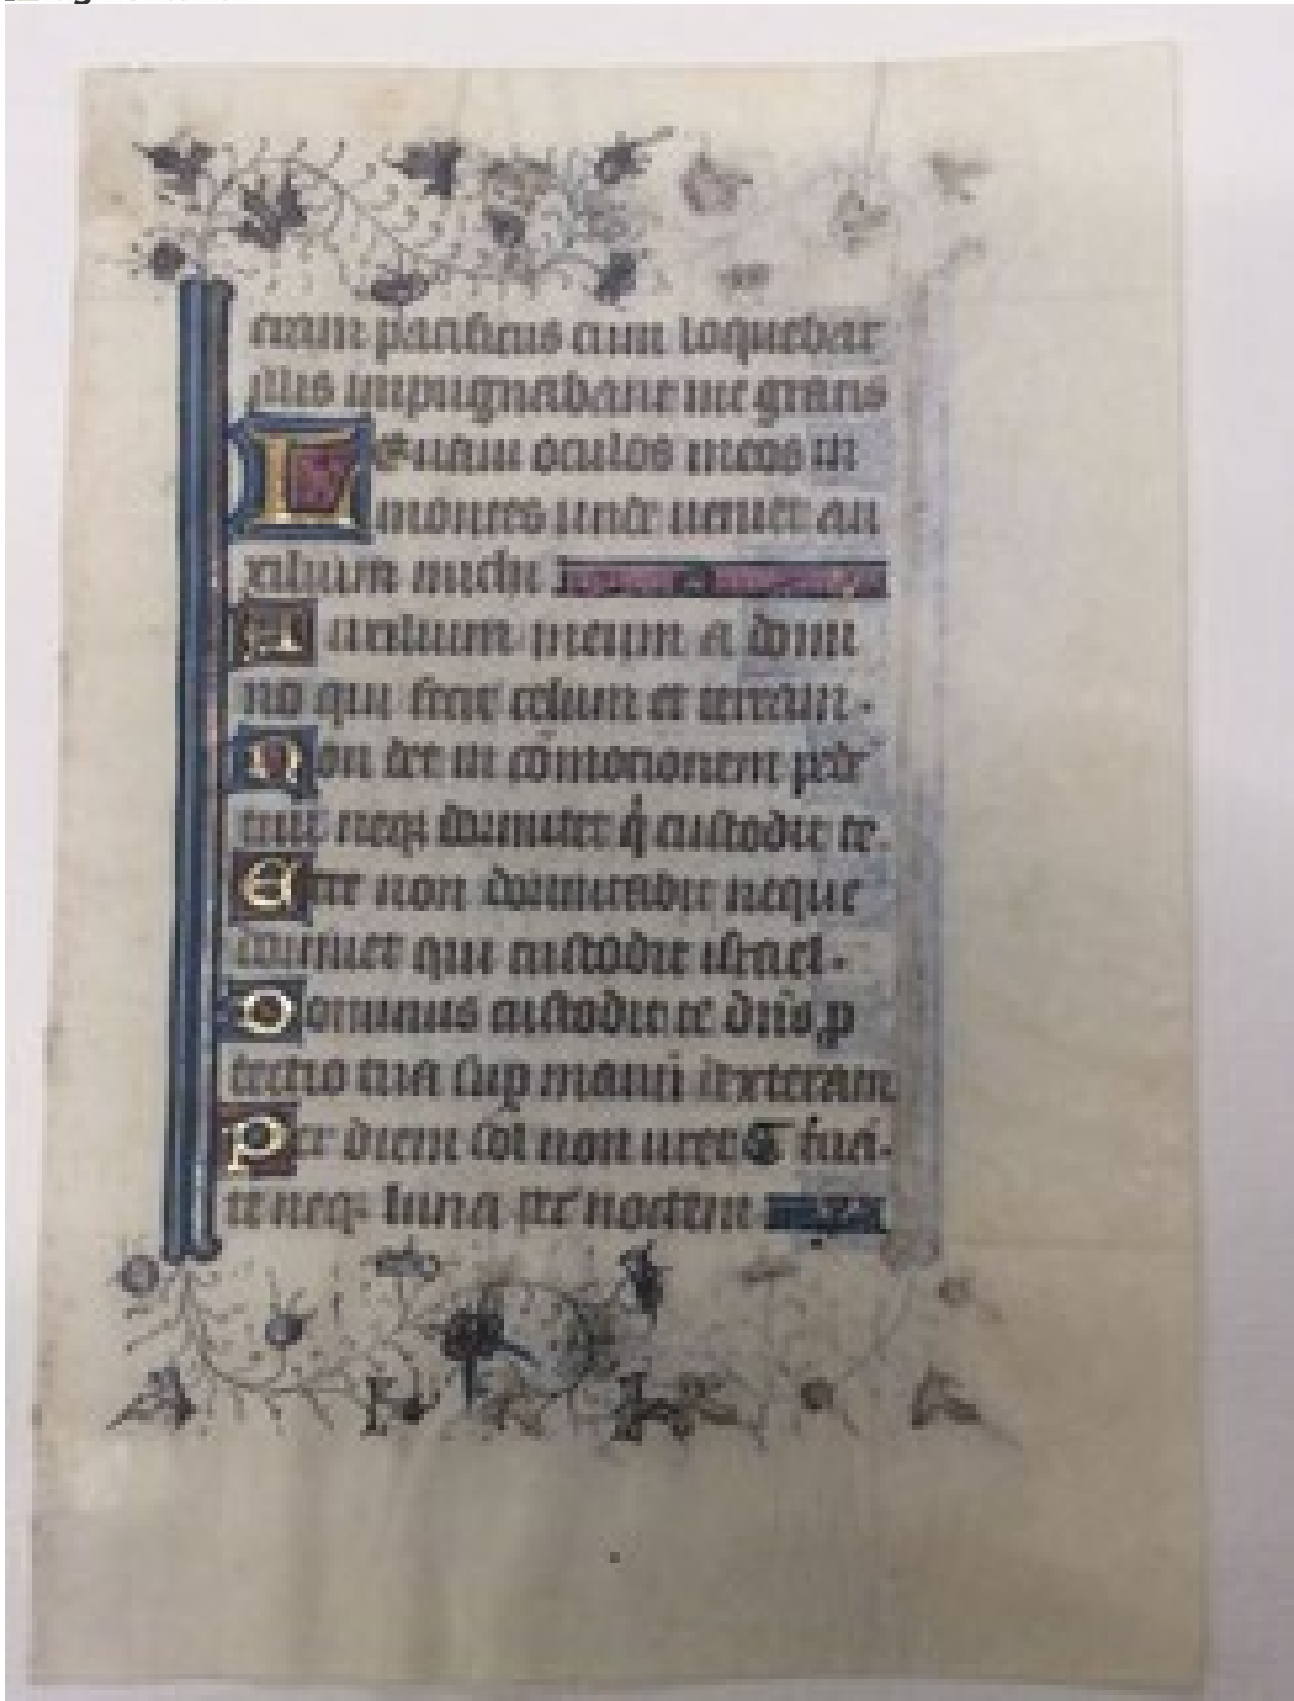 eram pacificus cum loquebar
illis impugnabant me gratis
Leuaui oculos meos in
montes unde ueniet au
xilium michi
Auxilium meum a domi
no qui fecit celum et terram.
Non det in cōmotionem pedē
tuū neqȝ dormitet q̇ custodit te.
Ecce non dormitabit neque
dormiet qui custodit israel.
Dominus custodit te dn̄s ꝓ
tectio tua sup manū dexteram
Per diem sol non uret te
te neqȝ luna per noctem